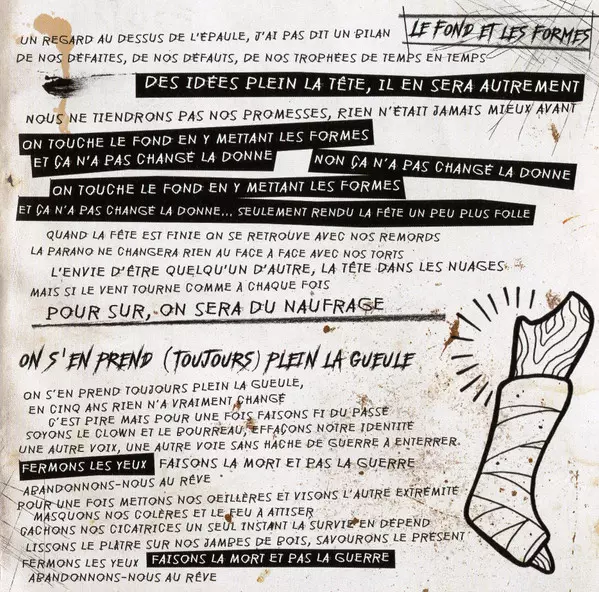 LE FOND ET LES FORMES
UN REGARD AU DESSUS DE L'ÉPAULE, J'AI PAS DIT UN BILAN
DE NOS DÉFAITES, DE NOS DÉFAUTS, DE NOS TROPHÉES DE TEMPS EN TEMPS
DES IDÉES PLEIN LA TÊTE, IL EN SERA AUTREMENT
NOUS NE TIENDRONS PAS NOS PROMESSES, RIEN N'ÉTAIT JAMAIS MIEUX AVANT
ON TOUCHE LE FOND EN Y METTANT LES FORMES
ET ÇA N'A PAS CHANGÉ LA DONNE NON ÇA N'A PAS CHANGÉ LA DONNE
ON TOUCHE LE FOND EN Y METTANT LES FORMES
ET ÇA N'A PAS CHANGÉ LA DONNE... SEULEMENT RENDU LA FÊTE UN PEU PLUS FOLLE
QUAND LA FÊTE EST FINIE ON SE RETROUVE AVEC NOS REMORDS
LA PARANO NE CHANGERA RIEN AU FACE À FACE AVEC NOS TORTS
L'ENVIE D'ÊTRE QUELQU'UN D'AUTRE, LA TÊTE DANS LES NUAGES
MAIS SI LE VENT TOURNE COMME À CHAQUE FOIS
POUR SUR, ON SERA DU NAUFRAGE
ON S'EN PREND (TOUJOURS) PLEIN LA GUEULE
ON S'EN PREND TOUJOURS PLEIN LA GUEULE,
EN CINQ ANS RIEN N'A VRAIMENT CHANGÉ
C'EST PIRE MAIS POUR UNE FOIS FAISONS FI DU PASSÉ
SOYONS LE CLOWN ET LE BOURREAU, EFFAÇONS NOTRE IDENTITÉ
UNE AUTRE VOIX, UNE AUTRE VOIE SANS HACHE DE GUERRE À ENTERRER.
FERMONS LES YEUX FAISONS LA MORT ET PAS LA GUERRE
ABANDONNONS-NOUS AU RÊVE
POUR UNE FOIS METTONS NOS OEILLÈRES ET VISONS L'AUTRE EXTRÉMITÉ
MASQUONS NOS COLÈRES ET LE FEU A ATTISER
CACHONS NOS CICATRICES UN SEUL INSTANT LA SURVIE EN DÉPEND
LISSONS LE PLÂTRE SUR NOS JAMBES DE BOIS, SAVOURONS LE PRÉSENT
FERMONS LES YEUX FAISONS LA MORT ET PAS LA GUERRE
ABANDONNONS-NOUS AU RÊVE